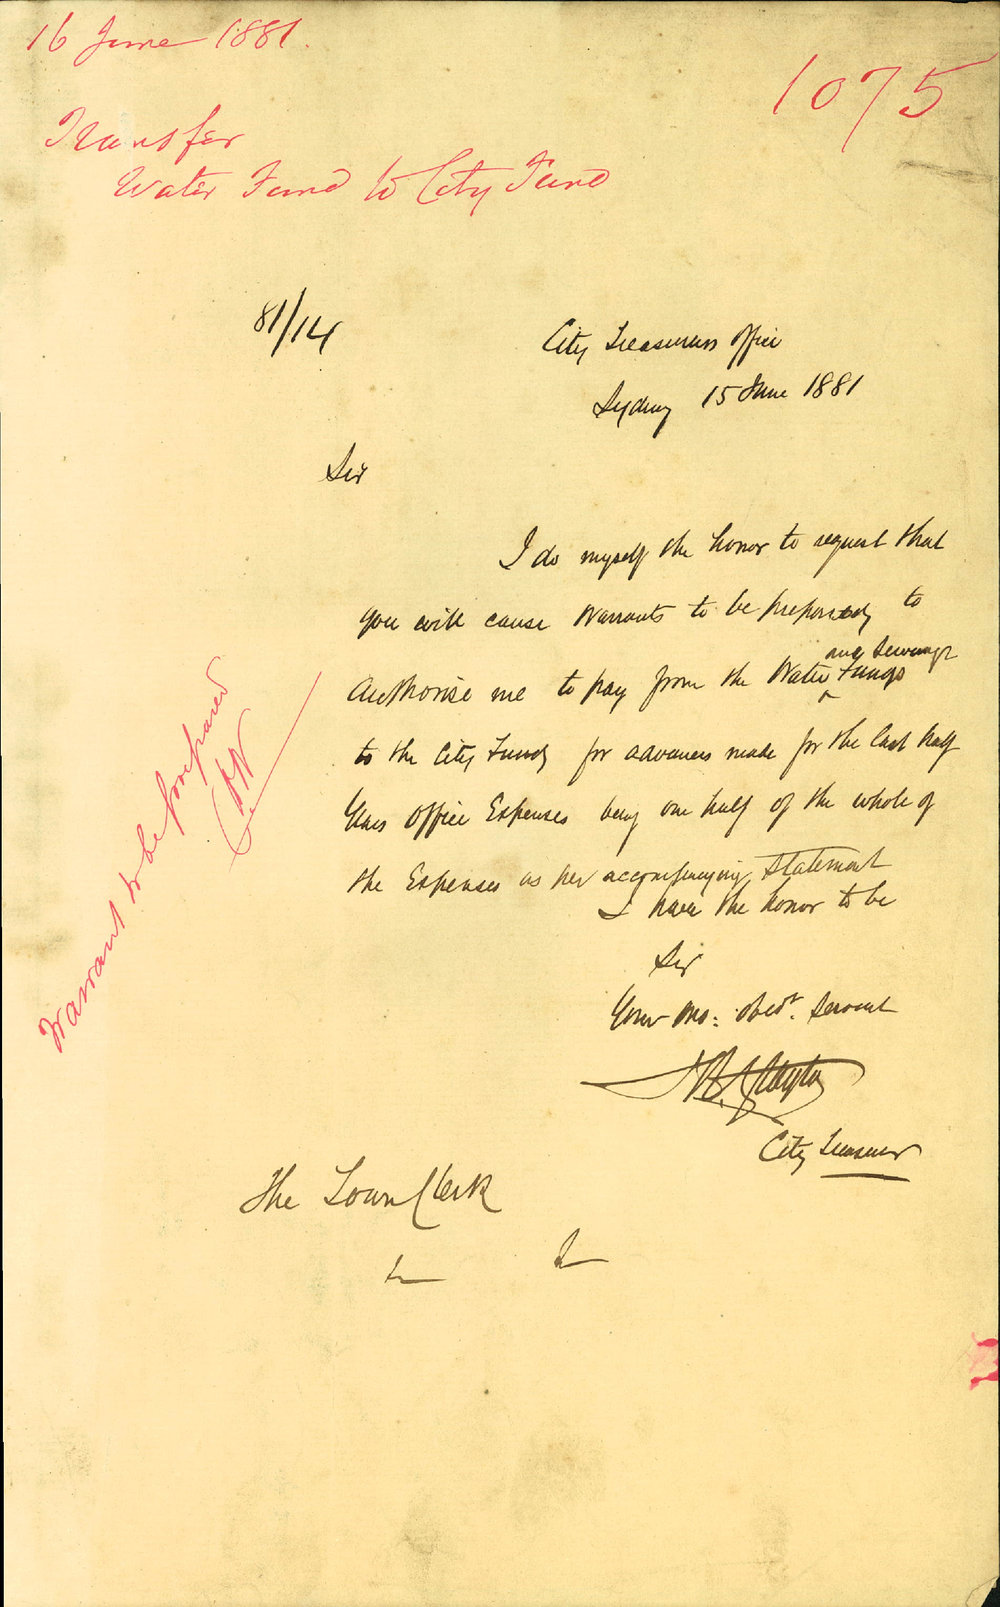 16 June 1881.
1075
Transfer
Water Fund to City Fund
81/14
City Treasurers Office
Sydney 15 June 1881
Sir
I do myself the honor to request that
you will cause Warrants to be prepared to
and Sewerage
Authorise me to pay from the Water ‸ Funds
to the City Funds for advances made for the last half
Years Office Expenses being one half of the whole of
the Expenses as per accompanying Statement
I have the honor to be
Sir
Your Mo: Obedt. Servant
City Treasurer
The Town Clerk
Warrant to be prepared